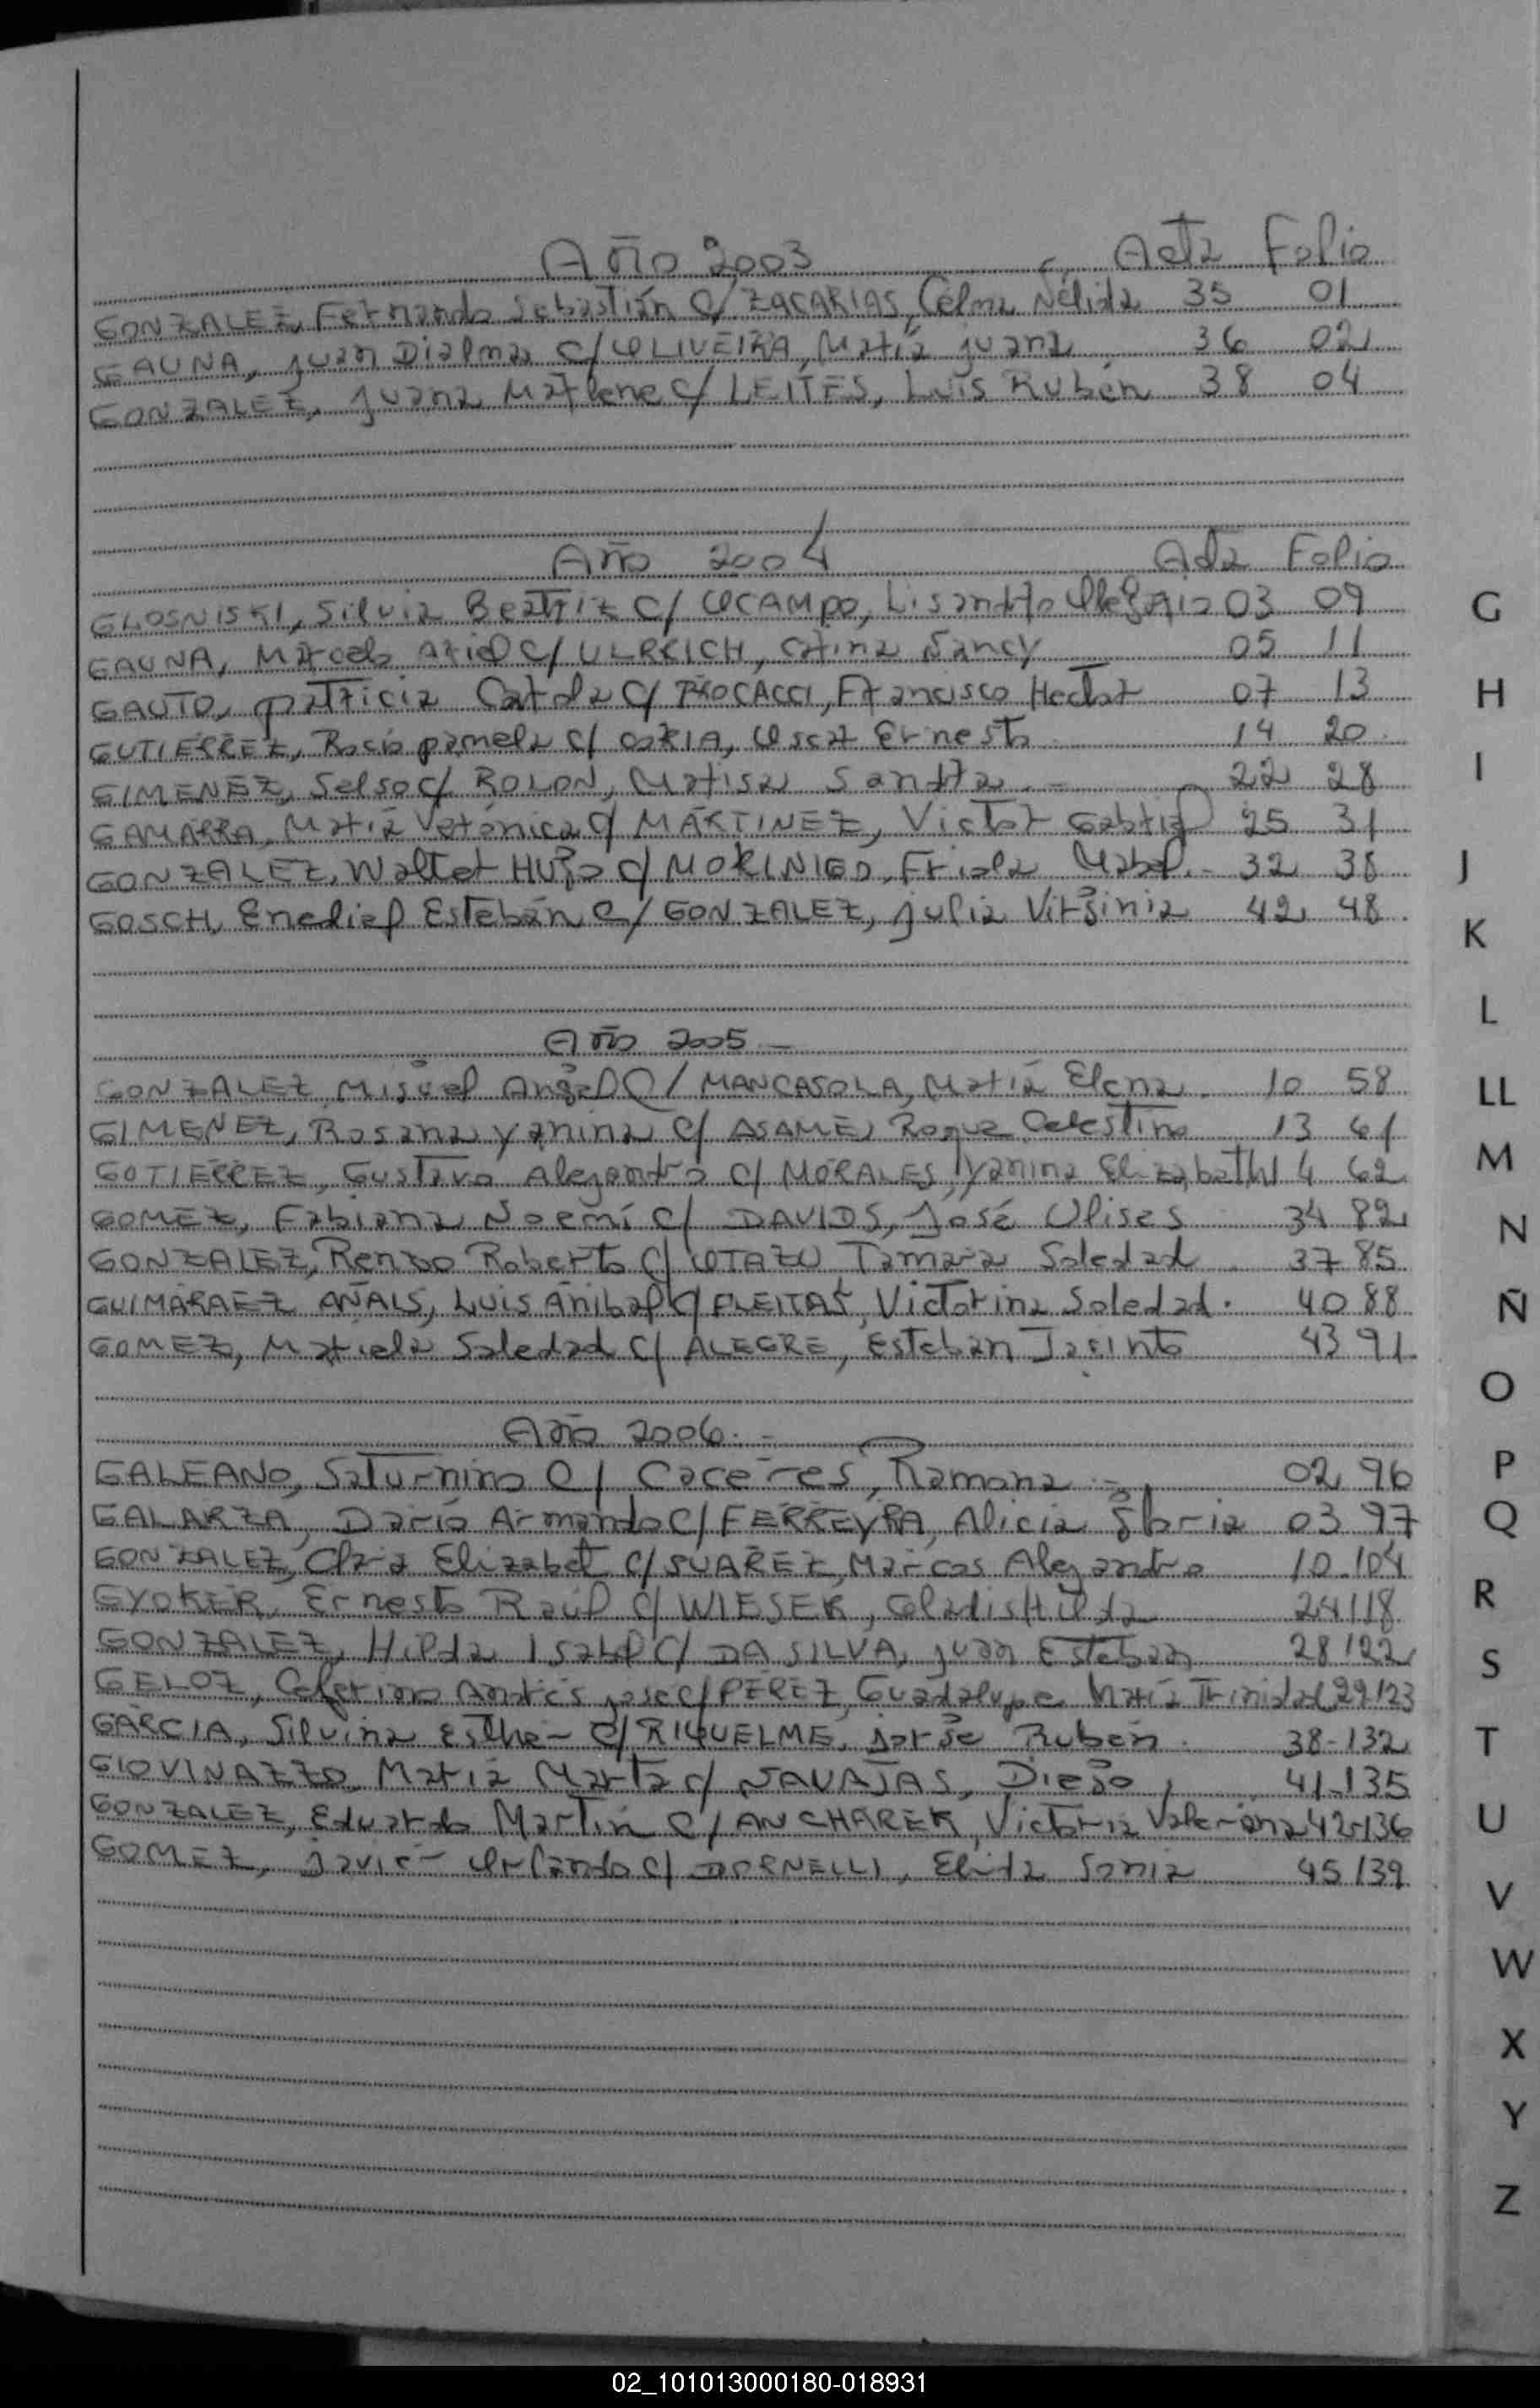 Año 2003 Acta Folio
GONZALEZ, Fernando Sebastián c/ ZACARIAS, Celma Nélida 35 01
GAUNA, Juan Dialma c/ OLIVEIRA, María Juana 36 02
GONZALEZ, Juana Marlene c/ LEITES, Luis Rubén 38 04
Año 2004 Acta Folio
GLOSNISKI, Silvia Beatriz c/ OCAMPO, Lisandro 03 09
GAUNA, Marcelo Ariel c/ ULRRICH, Nancy 05 11
GAUTO, patricia Carola c/ PROCACCI, Francisco Hector 07 13
GUTIERREZ, Rocío pamela c/ Oscar Ernesto 14 20
GIMENEZ, Selso c/ ROLON, Marisa Sandra.- 22 28
GAMARRA, María Verónica c/ MARTINEZ, Victor Gabriel 25 31
GONZALEZ, Walter Hugo c/ MORINIGO, Mabel.- 32 38
GOSCH, Enediel Estebán c/ GONZALEZ, Julia Virginia 42 48
Año 2005.-
GONZALEZ, Miguel Angel c/ MANCASOLA, María Elena. 10 58
GIMENEZ, Rosana yanina c/ ASAME, Roque Celestino 13 61
GOTIERREZ, Gustavo Alejandro c/ MORALES, Yanina Elizabeth 14 62
GOMEZ, Fabiana Noemí c/ DAVIDS, José Ulises 34 82
GONZALEZ, Renzo Roberto c/ OTAZU Tamara Soledad 37 85
GUIMARAEZ AÑAIS, Luis Anibal c/ FLEITAS, Victorina Soledad. 40 88
GOMEZ, Mariela Soledad c/ ALEGRE, Esteban Jacinto 43 91
Año 2006.-
GALEANO, Saturnino c/ Caceres, Ramona.- 02 96
GALARZA, Darío Armando c/ FERREYRA, Alicia gloria 03 97
GONZALEZ, Elizabet c/ SUAREZ, Marcos Alejandro 10.104
GYOKER, Ernesto Raúl c/ WIESER, Gladis Hilda 24 118
GONZALEZ, Hilda Isabel c/ DA SILVA, Juan Esteban 28 122
GELOZ, Ceferino Andrés jose c/ PEREZ, Guadalupe María Trinidad 29 123
GARCIA, Silvina Esther c/ RIQUELME, Jorge Rubén. 38-132
GIOVINAZZO, María Marta c/ NAVAJAS, Diego 41-135
GONZALEZ, Eduardo Martín c/ ANCHAREK, Victoria Valeriana 42-136
GOMEZ, Javier Orlando c/ DORNELLI, Elida Sonia 45 139
G
H
I
J
K
L
LL
M
N
Ñ
O
P
Q
R
S
T
U
V
W
X
Y
Z
02_101013000180-018931